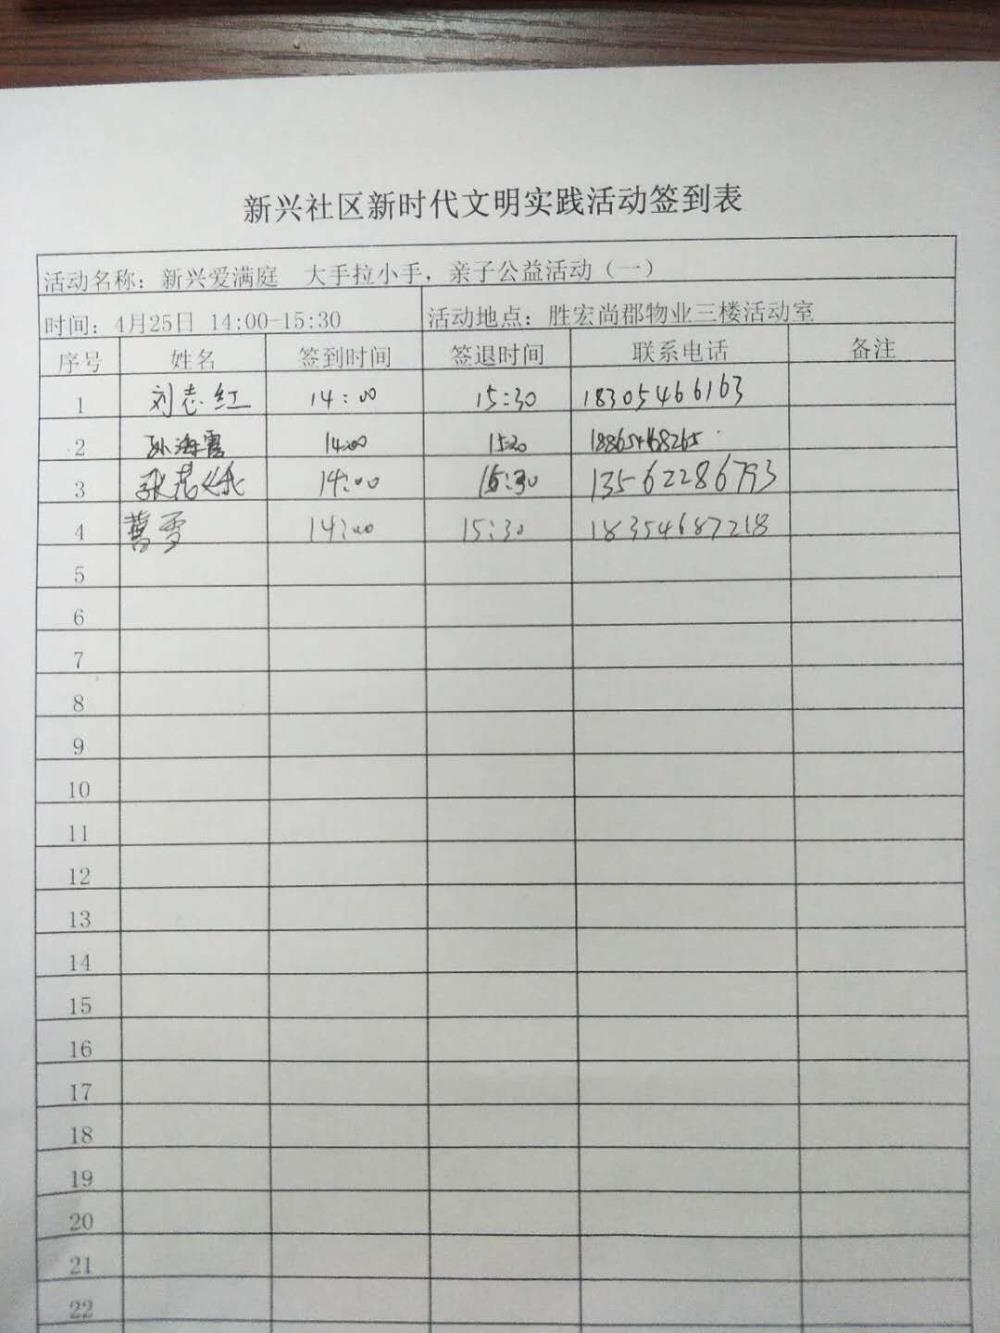 新兴社区新时代文明实践活动签到表
活动名称：新兴爱满庭 大手拉小手，亲子公益活动（一）
时间：4月25日 14:00-15:30 活动地点：胜宏尚郡物业三楼活动室
序号 姓名 签到时间 签退时间 联系电话 备注
1 刘志红 14:00 15:30 18305466163
2 孙海霞 14:00 15:30
3 张 14:00 15:30 13562286793
4 雪 14:00 15:30 18354687218
5
6
7
8
9
10
11
12
13
14
15
16
17
18
19
20
21
22